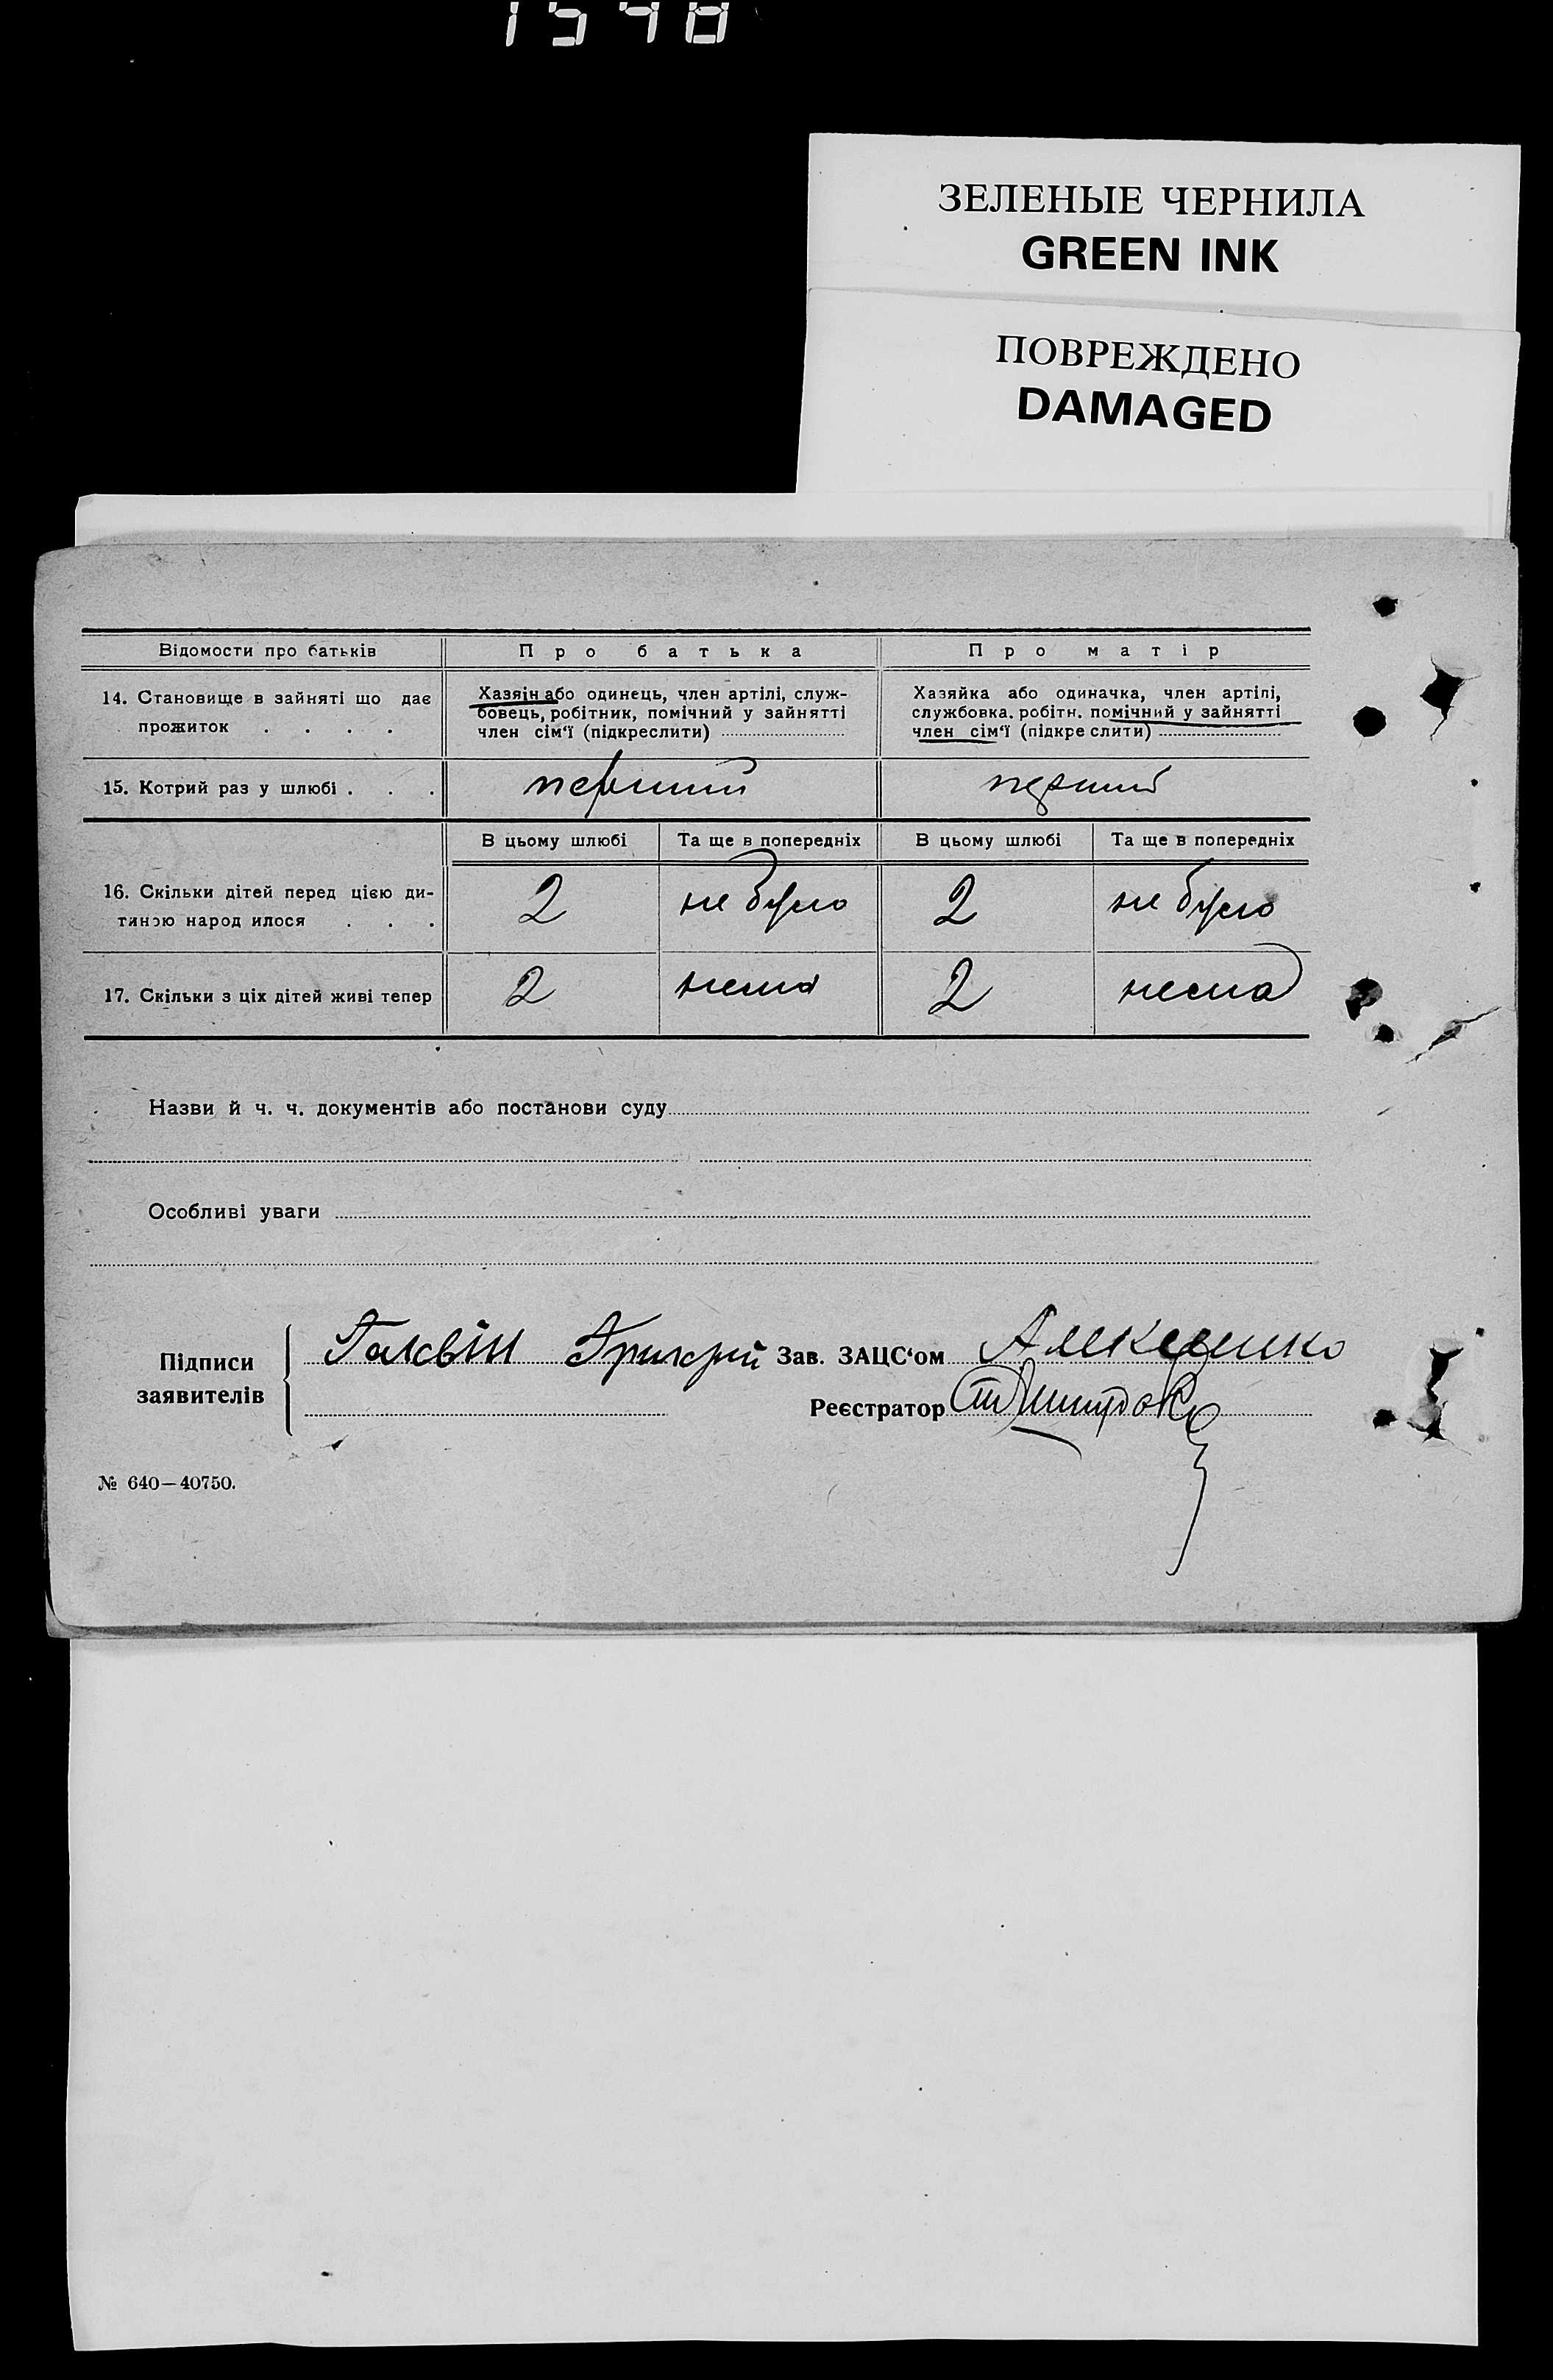 1548
ЗЕЛЕНЫЕ ЧЕРНИЛА
GREEN INK
ПОВРЕЖДЕНО
DAMAGED
Відомости про батьків Про батька Про матір
14. Становище в зайняті що дає
прожиток . . . .
Хазяін або одинець, член артілі, служ-
бовець, робітник, помічний у зайнятті
член сім'ї (підкреслити)
Хазяйка або одиначка, член артілі,
службовка. робітн. помічний у зайнятті
член сім'ї (підкре слити)
15. Котрий раз у шлюбі . . . перший перший
В цьому шлюбі Та ще в попередніх В цьому шлюбі Та ще в попередніх
16. Скільки дітей перед цією ди-
тиною народ илося . . .
2 не було 2 не було
17. Скільки з ціх дітей живі тепер 2 нема 2 нема
Назви й ч. ч. документів або постанови суду
Особливі уваги
Підписи
заявителів
Григорій
Зав. ЗАЦС'ом
Реєстратор
№ 640—40750.